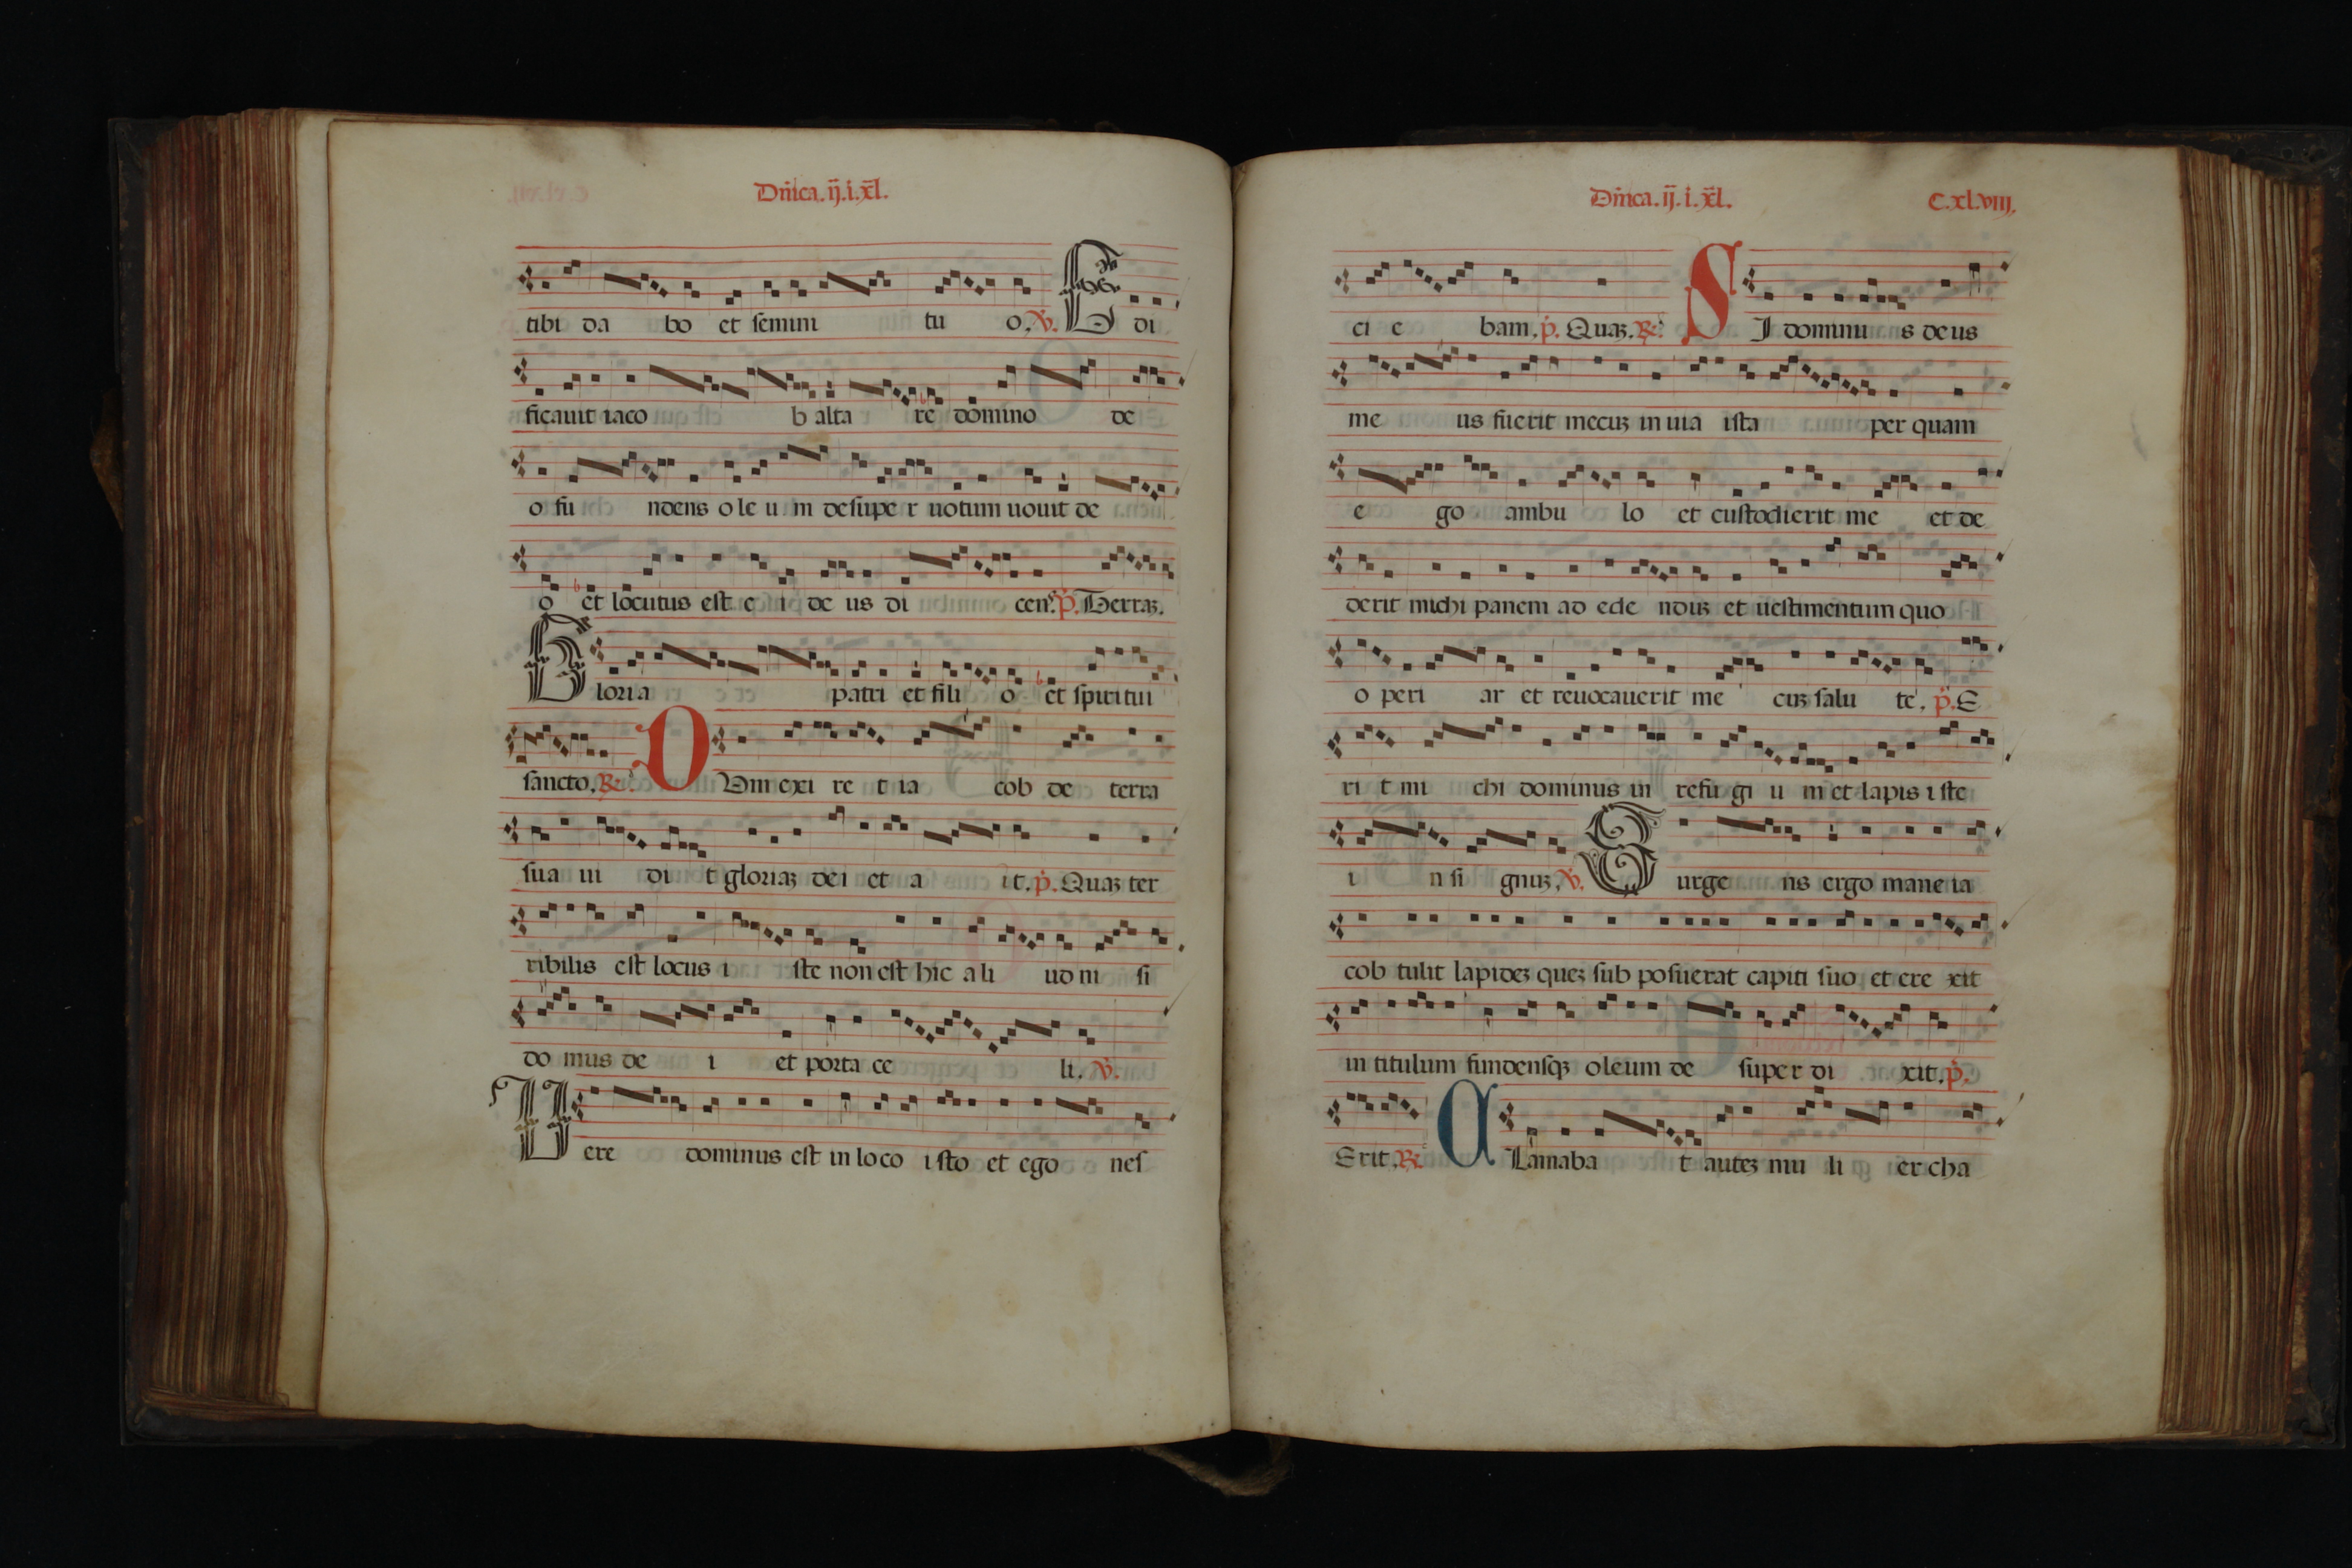 Dn̄ica.ij.i.xl̄.
tibi da bo et semini tu o. V. E di
ficauit iaco b alta re domino de
o fu ndens o le u m desupe r uotum uouit de
o et locutus est e i de us di cens. p. Terraꝫ.
G loria patri et fili o et spiritui
sancto. R. D Vm exi re t ia cob de terra
sua ui di t gloriaꝫ dei et a it. p. Quaꝫ ter
ribilis est locus i ste non est hic a li ud ni si
do mus de i et porta ce li. V.
U ere dominus est in loco i sto et ego nes
Dn̄ica.ij.i.xl̄. C.xl.viij.
ci e bam. p. Quaꝫ. R. S I dominu s deus
me us fuerit mecuꝫ in uia ista per quam
e go ambu lo et custodierit me et de
derit michi panem ad ede nduꝫ et uestimentum quo
o peri ar et reuocauerit me cuꝫ salu te. p. E
ri t mi chi dominus in refu gi u m et lapis i ste
i n si gnuꝫ. V. S urge ns ergo mane ia
cob tulit lapideꝫ queꝫ sub posuerat capiti suo et ere xit
in titulum fundensqꝫ oleum de supe r di xit. p.
Erit. R. C Lamaba t auteꝫ mu li er cha